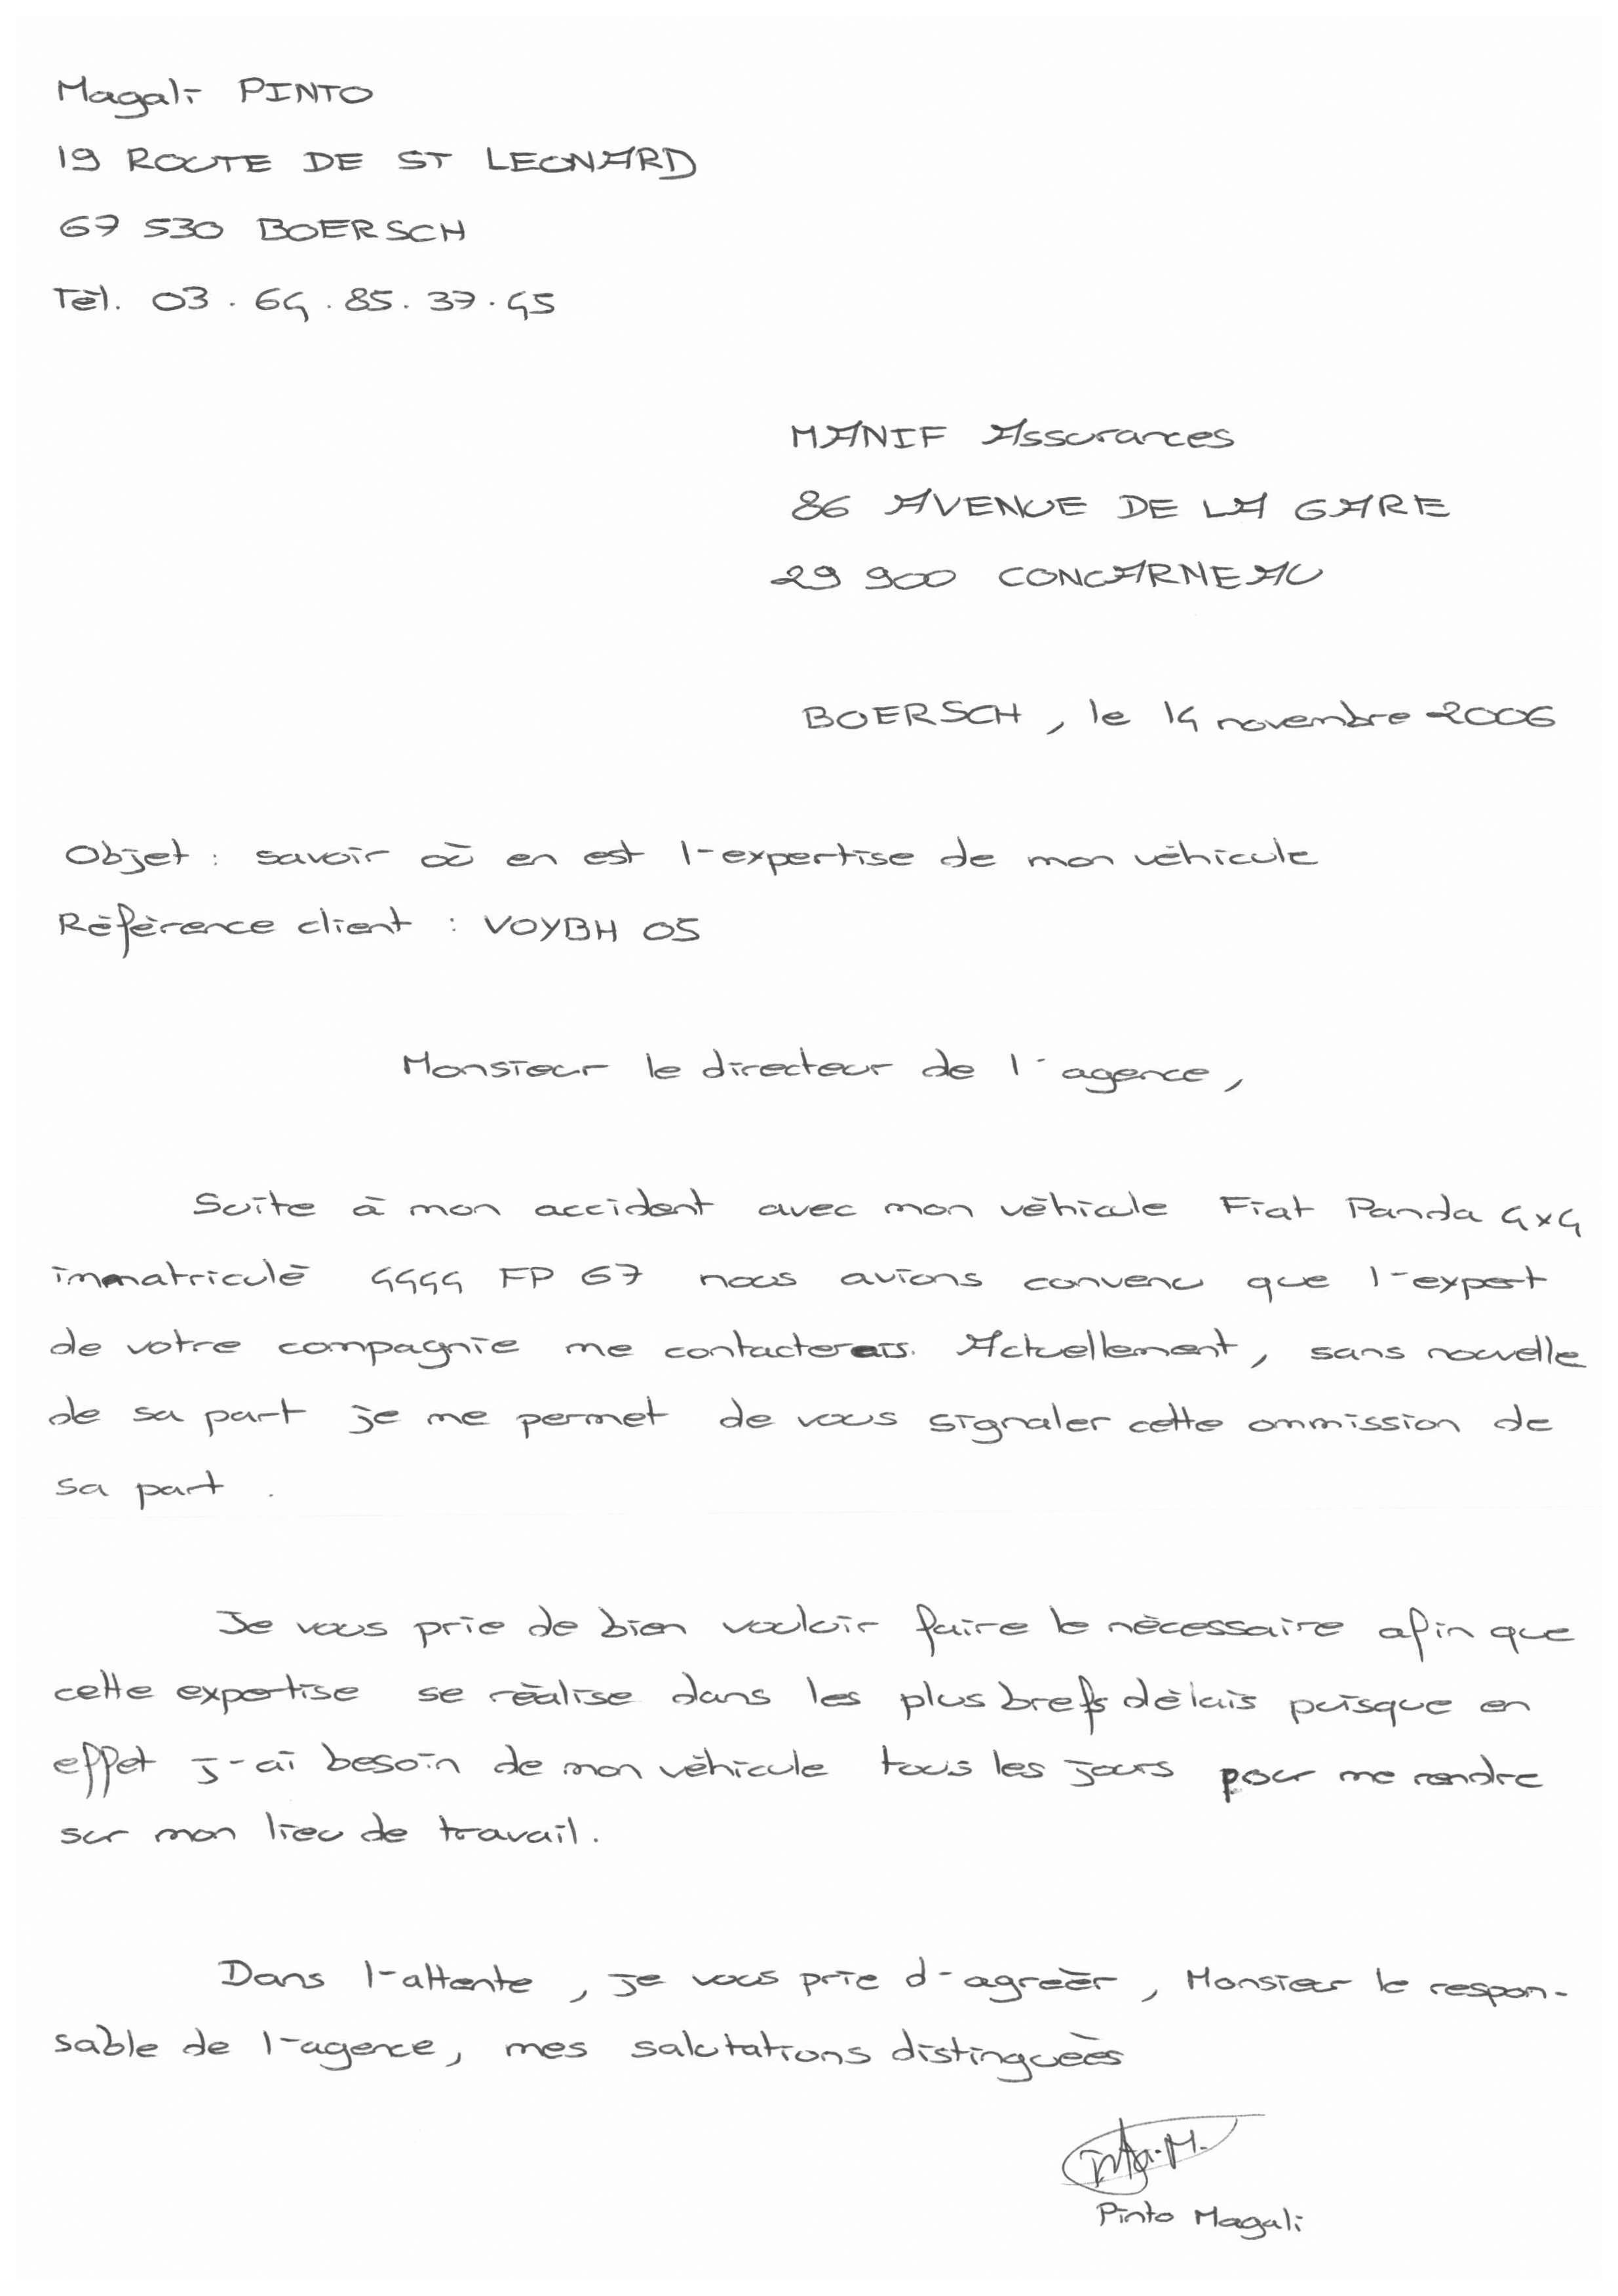 Magali PINTO
19 ROUTE DE ST LEONARD
67 530 BOERSCH
Tél. 03.64.85.37.45
MANIF Assurances
86 AVENUE DE LA GARE
29 900 CONCARNEAU
BOERSCH, le 14 novembre 2006
Objet : savoir où en est l'expertise de mon véhicule
Référence client : VOYBH 05
Monsieur le directeur de l'agence,
Suite à mon accident avec mon véhicule Fiat Panda 4x4
immatriculé 4444 FP 67 nous avions convenu que l'expert
de votre compagnie me contacterais. Actuellement, sans nouvelle
de sa part je me permet de vous signaler cette ommission de
sa part.
Je vous prie de bien vouloir faire le nécessaire afin que
cette expertise se réalise dans les plus brefs délais puisque en
effet j'ai besoin de mon véhicule tous les jours pour me rendre
sur mon lieu de travail.
Dans l'attente, je vous prie d'agréer, Monsieur le respon-
sable de l'agence, mes salutations distinguées
Pinto Magali